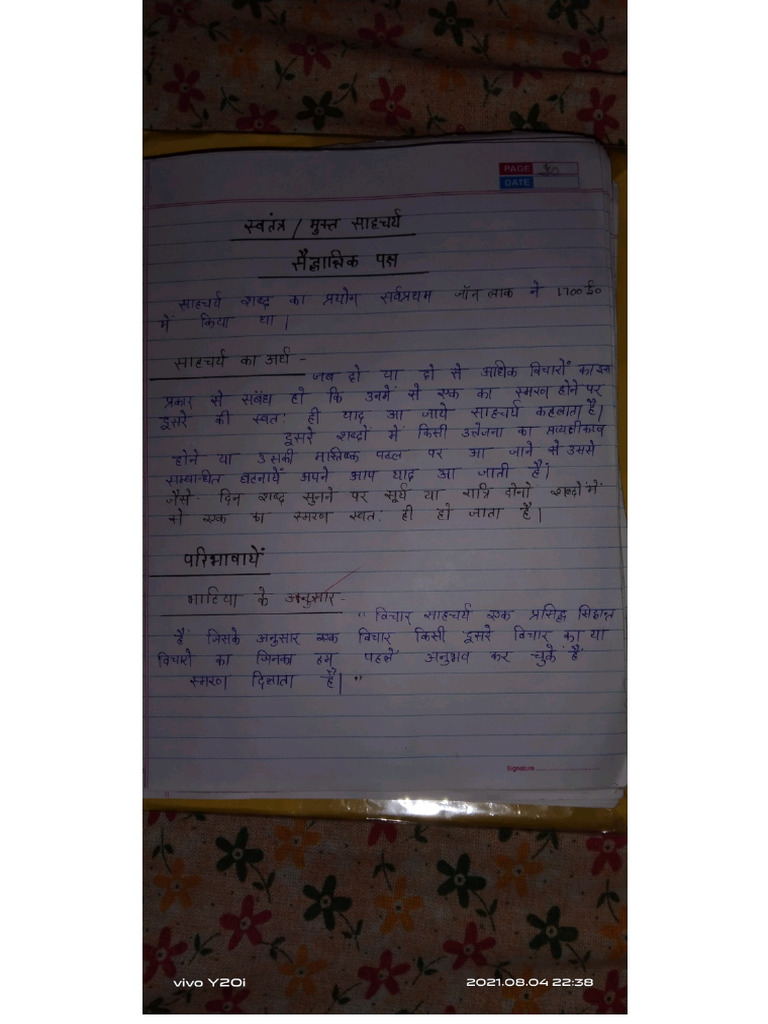 PAGE 50
DATE
स्वतंत्र / मुक्त साहचर्य
सैद्धान्तिक पक्ष
साहचर्य शब्द का प्रयोग सर्वप्रथम जॉन लाक ने 1700 ई०
में किया था।
साहचर्य का अर्थ -
जब दो या दो से अधिक विचारों का इस
प्रकार से संबंध हो कि उनमें से एक का स्मरण होने पर
दूसरे की स्वतः ही याद आ जाये साहचर्य कहलाता है।
दूसरे शब्दों में किसी उत्तेजना का प्रत्यक्षीकरण
होने या उसकी मास्तिष्क पटल पर आ जाने से उससे
सम्बान्धित घटनायें अपने आप याद आ जाती हैं।
जैसे दिन शब्द सुनने पर सूर्य या रात्रि दोनो शब्दों में
से एक का स्मरण स्वतः ही हो जाता है।
परिभाषायें
भाटिया के अनुसार -
" विचार साहचर्य एक प्रसिद्ध सिद्धान्त
है जिसके अनुसार एक विचार किसी दूसरे विचार का या
विचारो का जिनका हम पहले अनुभव कर चुके है
स्मरण दिलाता है। "
Signature
vivo Y20i
2021.08.04 22:38